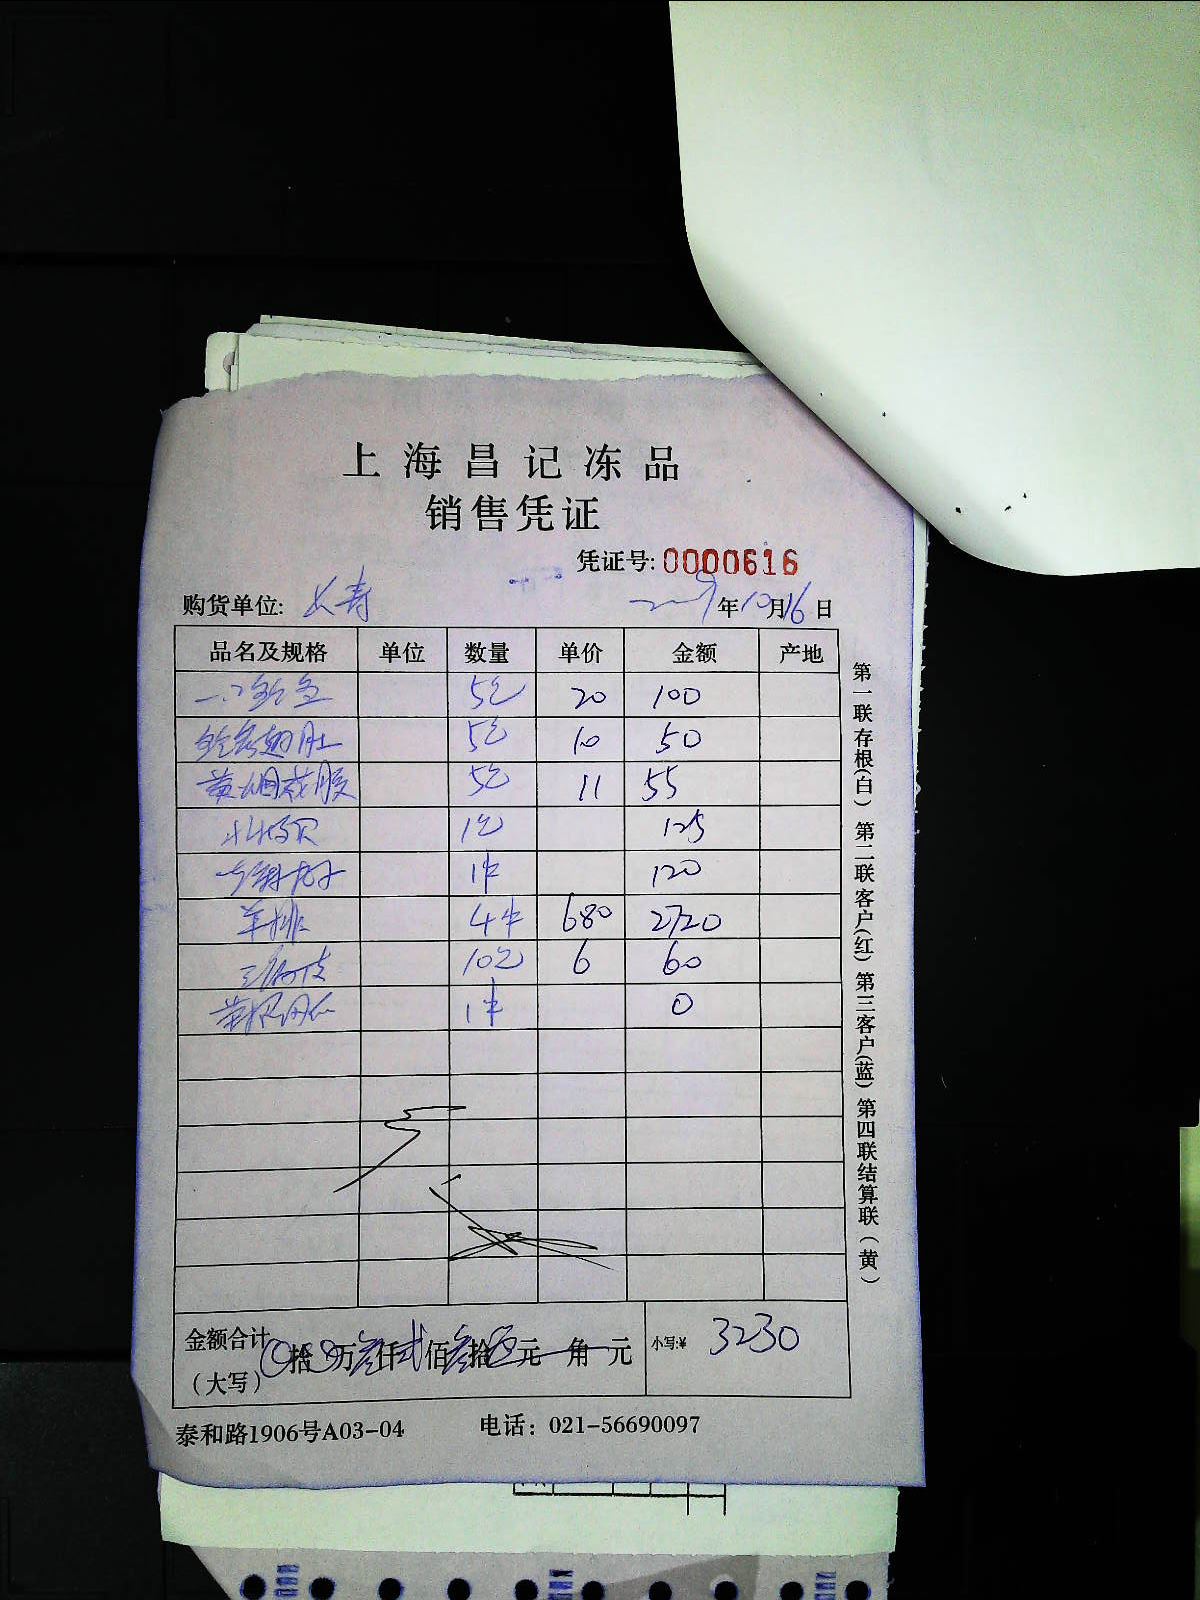 上海昌记冻品
销售凭证
凭证号: 0000616
购货单位: 长寿 年10月16日
品名及规格 单位 数量 单价 金额 产地
一口 5包 20 100
鲍鱼翅肚 5包 10 50
黄焖花胶 5包 11 55
1包 125
1件 120
羊排 4件 680 2720
10包 6 60
1件 0
金额合计 拾 万叁仟贰佰叁拾 元 角 元 小写:¥ 3230
（大写）
泰和路1906号A03-04 电话：021-56690097
第一联存根(白) 第二联客户(红) 第三客户(蓝) 第四联结算联（黄）